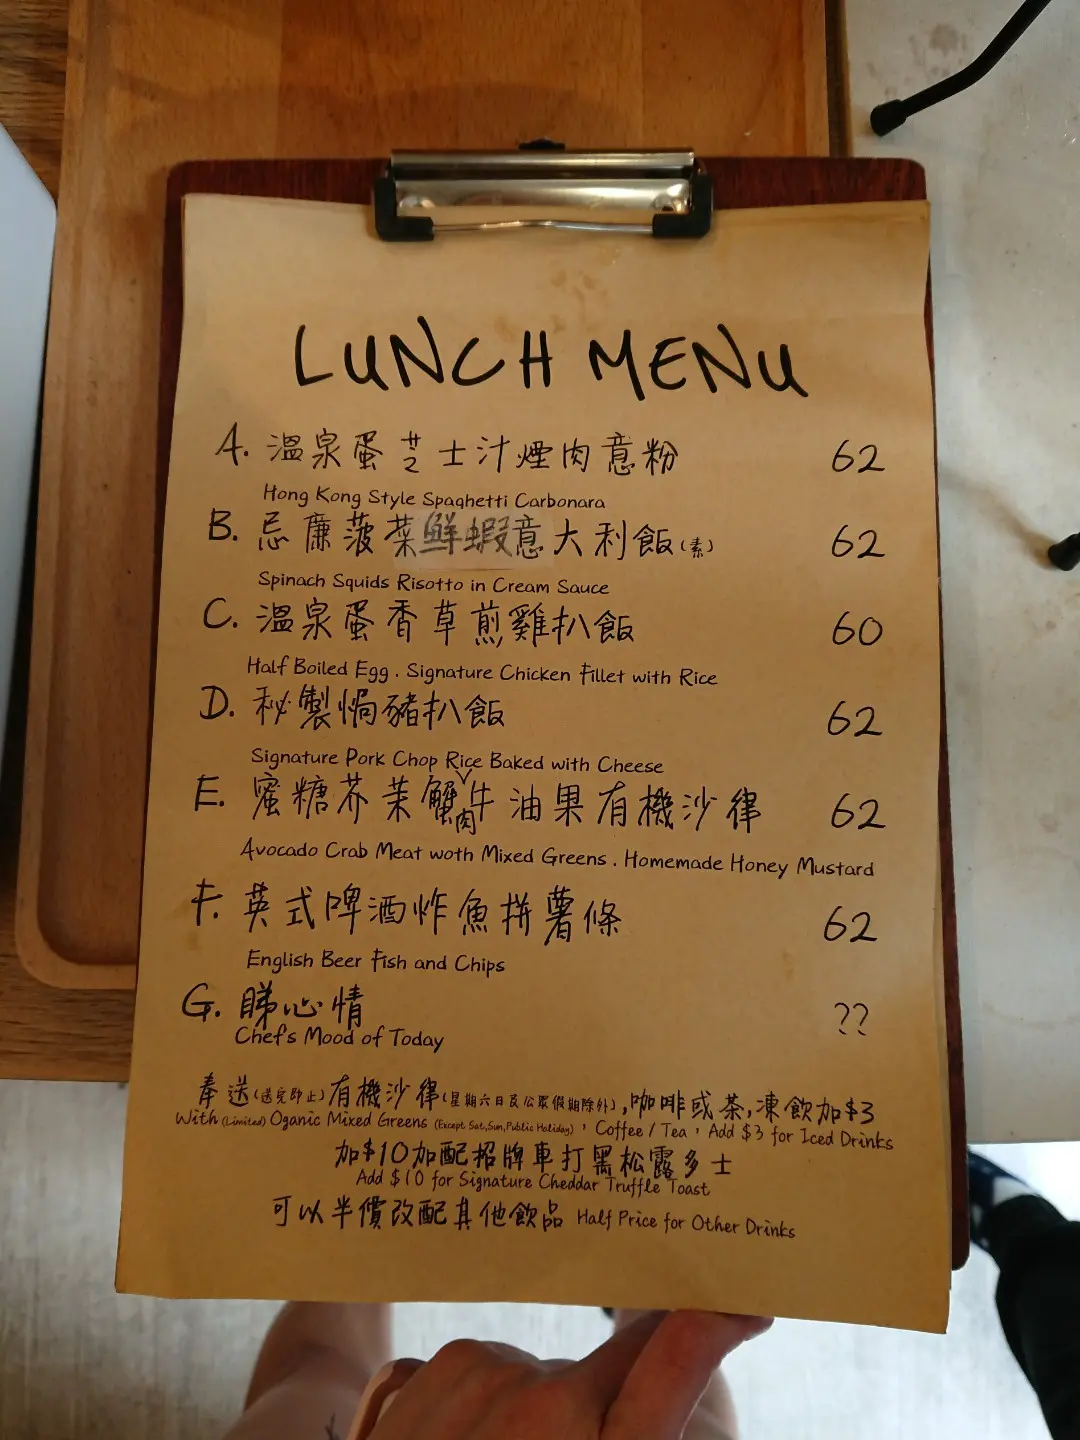 LUNCH MENU
A. 溫泉蛋芝士汁煙肉意粉 62
Hong Kong Style Spaghetti Carbonara
B. 忌廉菠菜鮮蝦意大利飯(素) 62
Spinach Squids Risotto in Cream Sauce
C. 溫泉蛋香草煎雞扒飯 60
Half Boiled Egg . Signature Chicken Fillet with Rice
D. 秘製焗豬扒飯 62
Signature Pork Chop Rice Baked with Cheese
E. 蜜糖芥茉蟹肉牛油果有機沙律 62
Avocado Crab Meat woth Mixed Greens . Homemade Honey Mustard
F. 英式啤酒炸魚拼薯條 62
English Beer Fish and Chips
G. 睇心情 ??
Chef's Mood of Today
奉送(送完即止)有機沙律(星期六日及公眾假期除外),咖啡或茶,凍飲加$3
With (Limited) Oganic Mixed Greens (Except Sat,Sun,Public Holiday), Coffee / Tea, Add $3 for Iced Drinks
加$10加配招牌車打黑松露多士
Add $10 for Signature Cheddar Truffle Toast
可以半價改配其他飲品 Half Price for Other Drinks